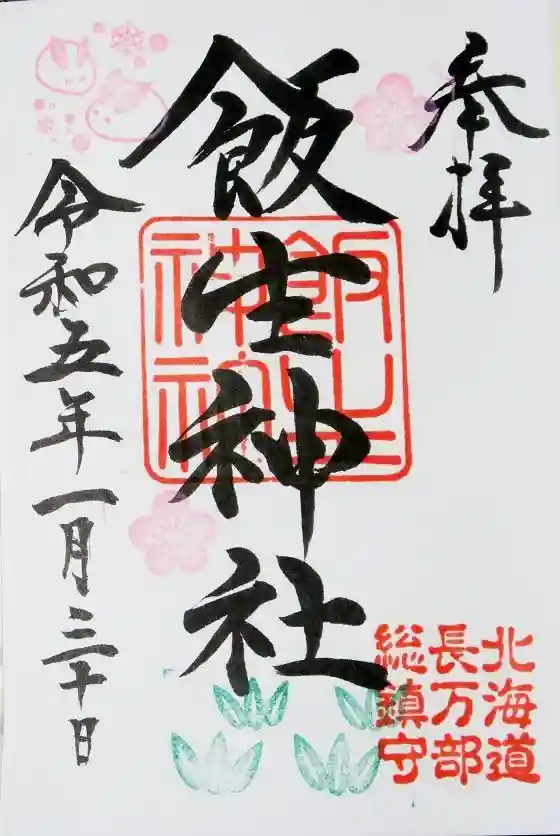 奉拝
飯生神社
飯生神社
令和五年一月三十日
北海道
長万部
総鎮守